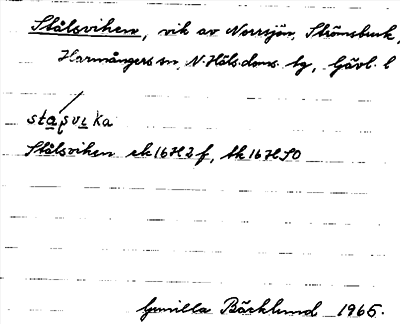 Stålsviken, vik av Norrsjön, Strömsbruk,
Harmångers sn, N. Häls. doms. tg, Gävl. l
Stålsviken ek 16H2f, tk 16H SO
Gunilla Bäcklund 1965.